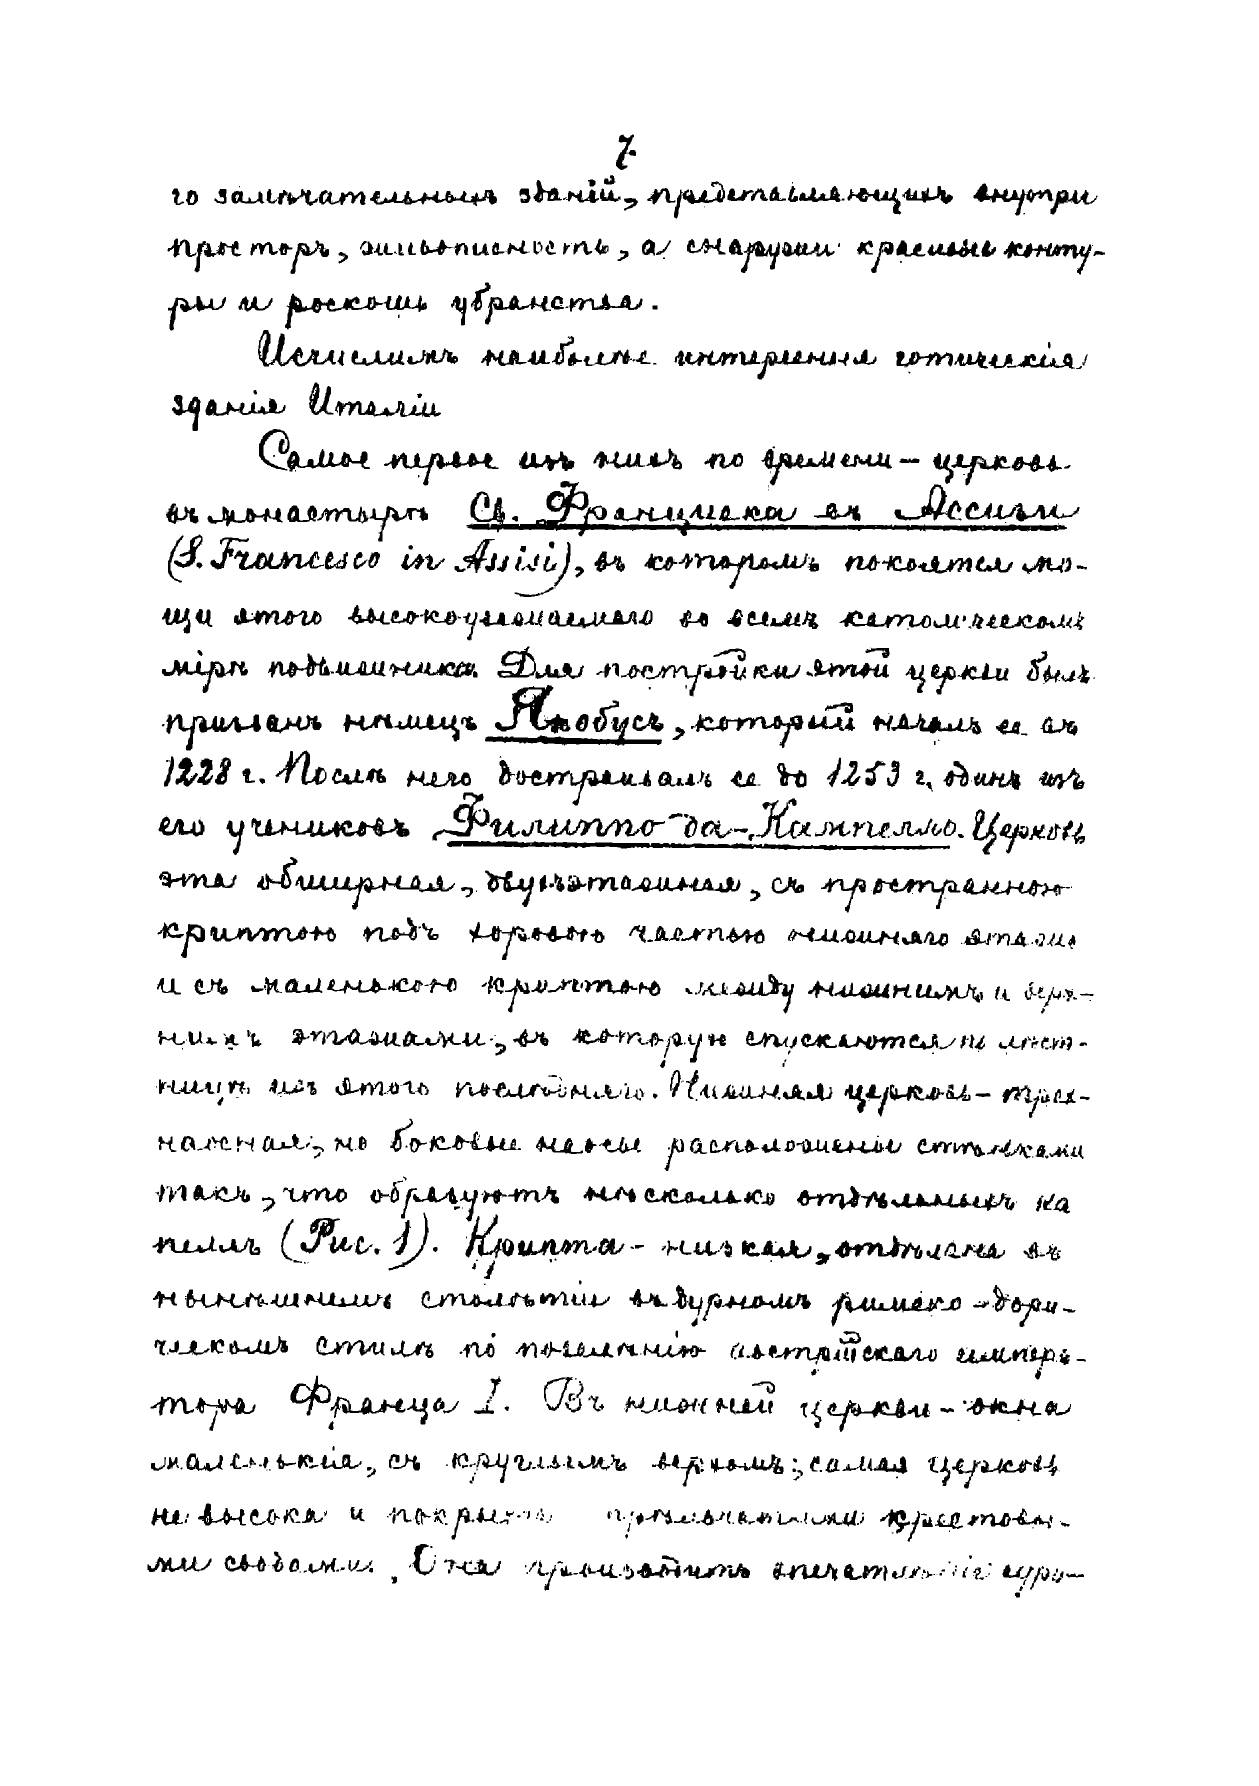 7.
го замѣчательныхъ зданій, представляющихъ внутри
просторъ, живописность, а снаружи красивые конту-
ры и роскошь убранства.
Исчислимъ наиболѣе интересныя готическія
зданія Италіи
Самое первое изъ нихъ по времени – церковь
въ монастырѣ Св. Франциска въ Ассизи
(S. Francesco in Assisi), въ которомъ покоятся мо-
щи этого высокоуважаемаго во всемъ католическомъ
мірѣ подвижника. Для постройки этой церкви былъ
призванъ нѣмецъ Якобусъ, который началъ ее въ
1228 г. Послѣ него достраивалъ ее до 1253 г. одинъ изъ
его учениковъ Филиппо-да-Кампелло. Церковь
эта обширная, двухъэтажная, съ пространною
криптою подъ хоровою частью нижняго этажа
и съ маленькою криптою между нижнимъ и верх-
нимъ этажами, въ которую спускаются по лѣст-
ницѣ изъ этого послѣдняго. Нижняя церковь – трех-
наосная, но боковые наосы расположены стѣнками
такъ, что образуютъ нѣсколько отдѣльныхъ ка
пеллъ (Рис. 1). Крипта – низкая, отдѣлана въ
нынѣшнемъ столѣтіи въ дурномъ римско-дори-
ческомъ стилѣ по повелѣнію австрійскаго импера-
тора Франца I. Въ нижней церкви – окна
маленькія, съ круглымъ верхомъ; самая церковь
не высока и покрыта крестовы-
ми сводами. Она производитъ впечатлѣніе суро-